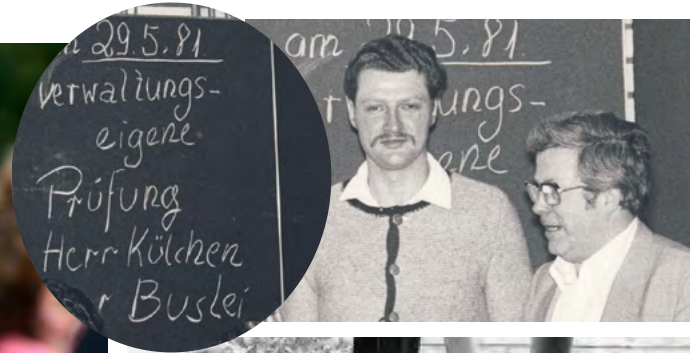 29.5.81
verwaltungs-
eigene
Prüfung
Herr Külchen
r Buslei
am 29.5.81.
ungs-
ene